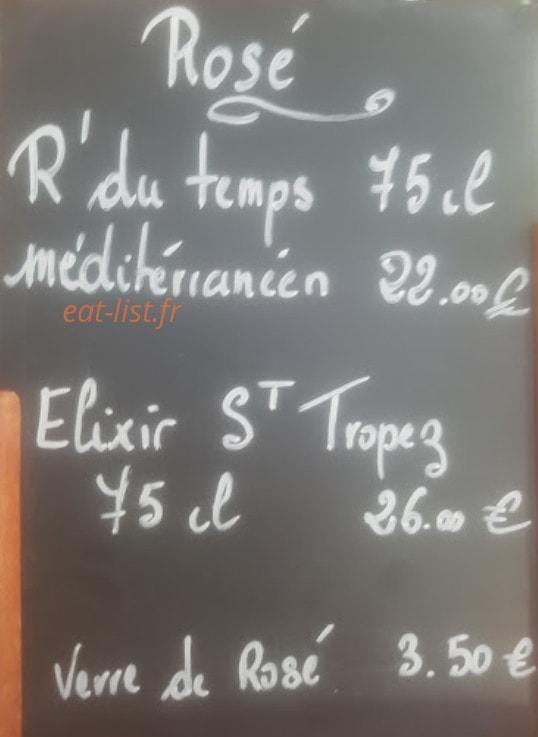 Rosé
R'du temps 75 cl
méditérranéen 22.00€
eat-list.fr
Elixir S^T Tropez
75 cl 26.00 €
Verre de Rosé 3.50 €